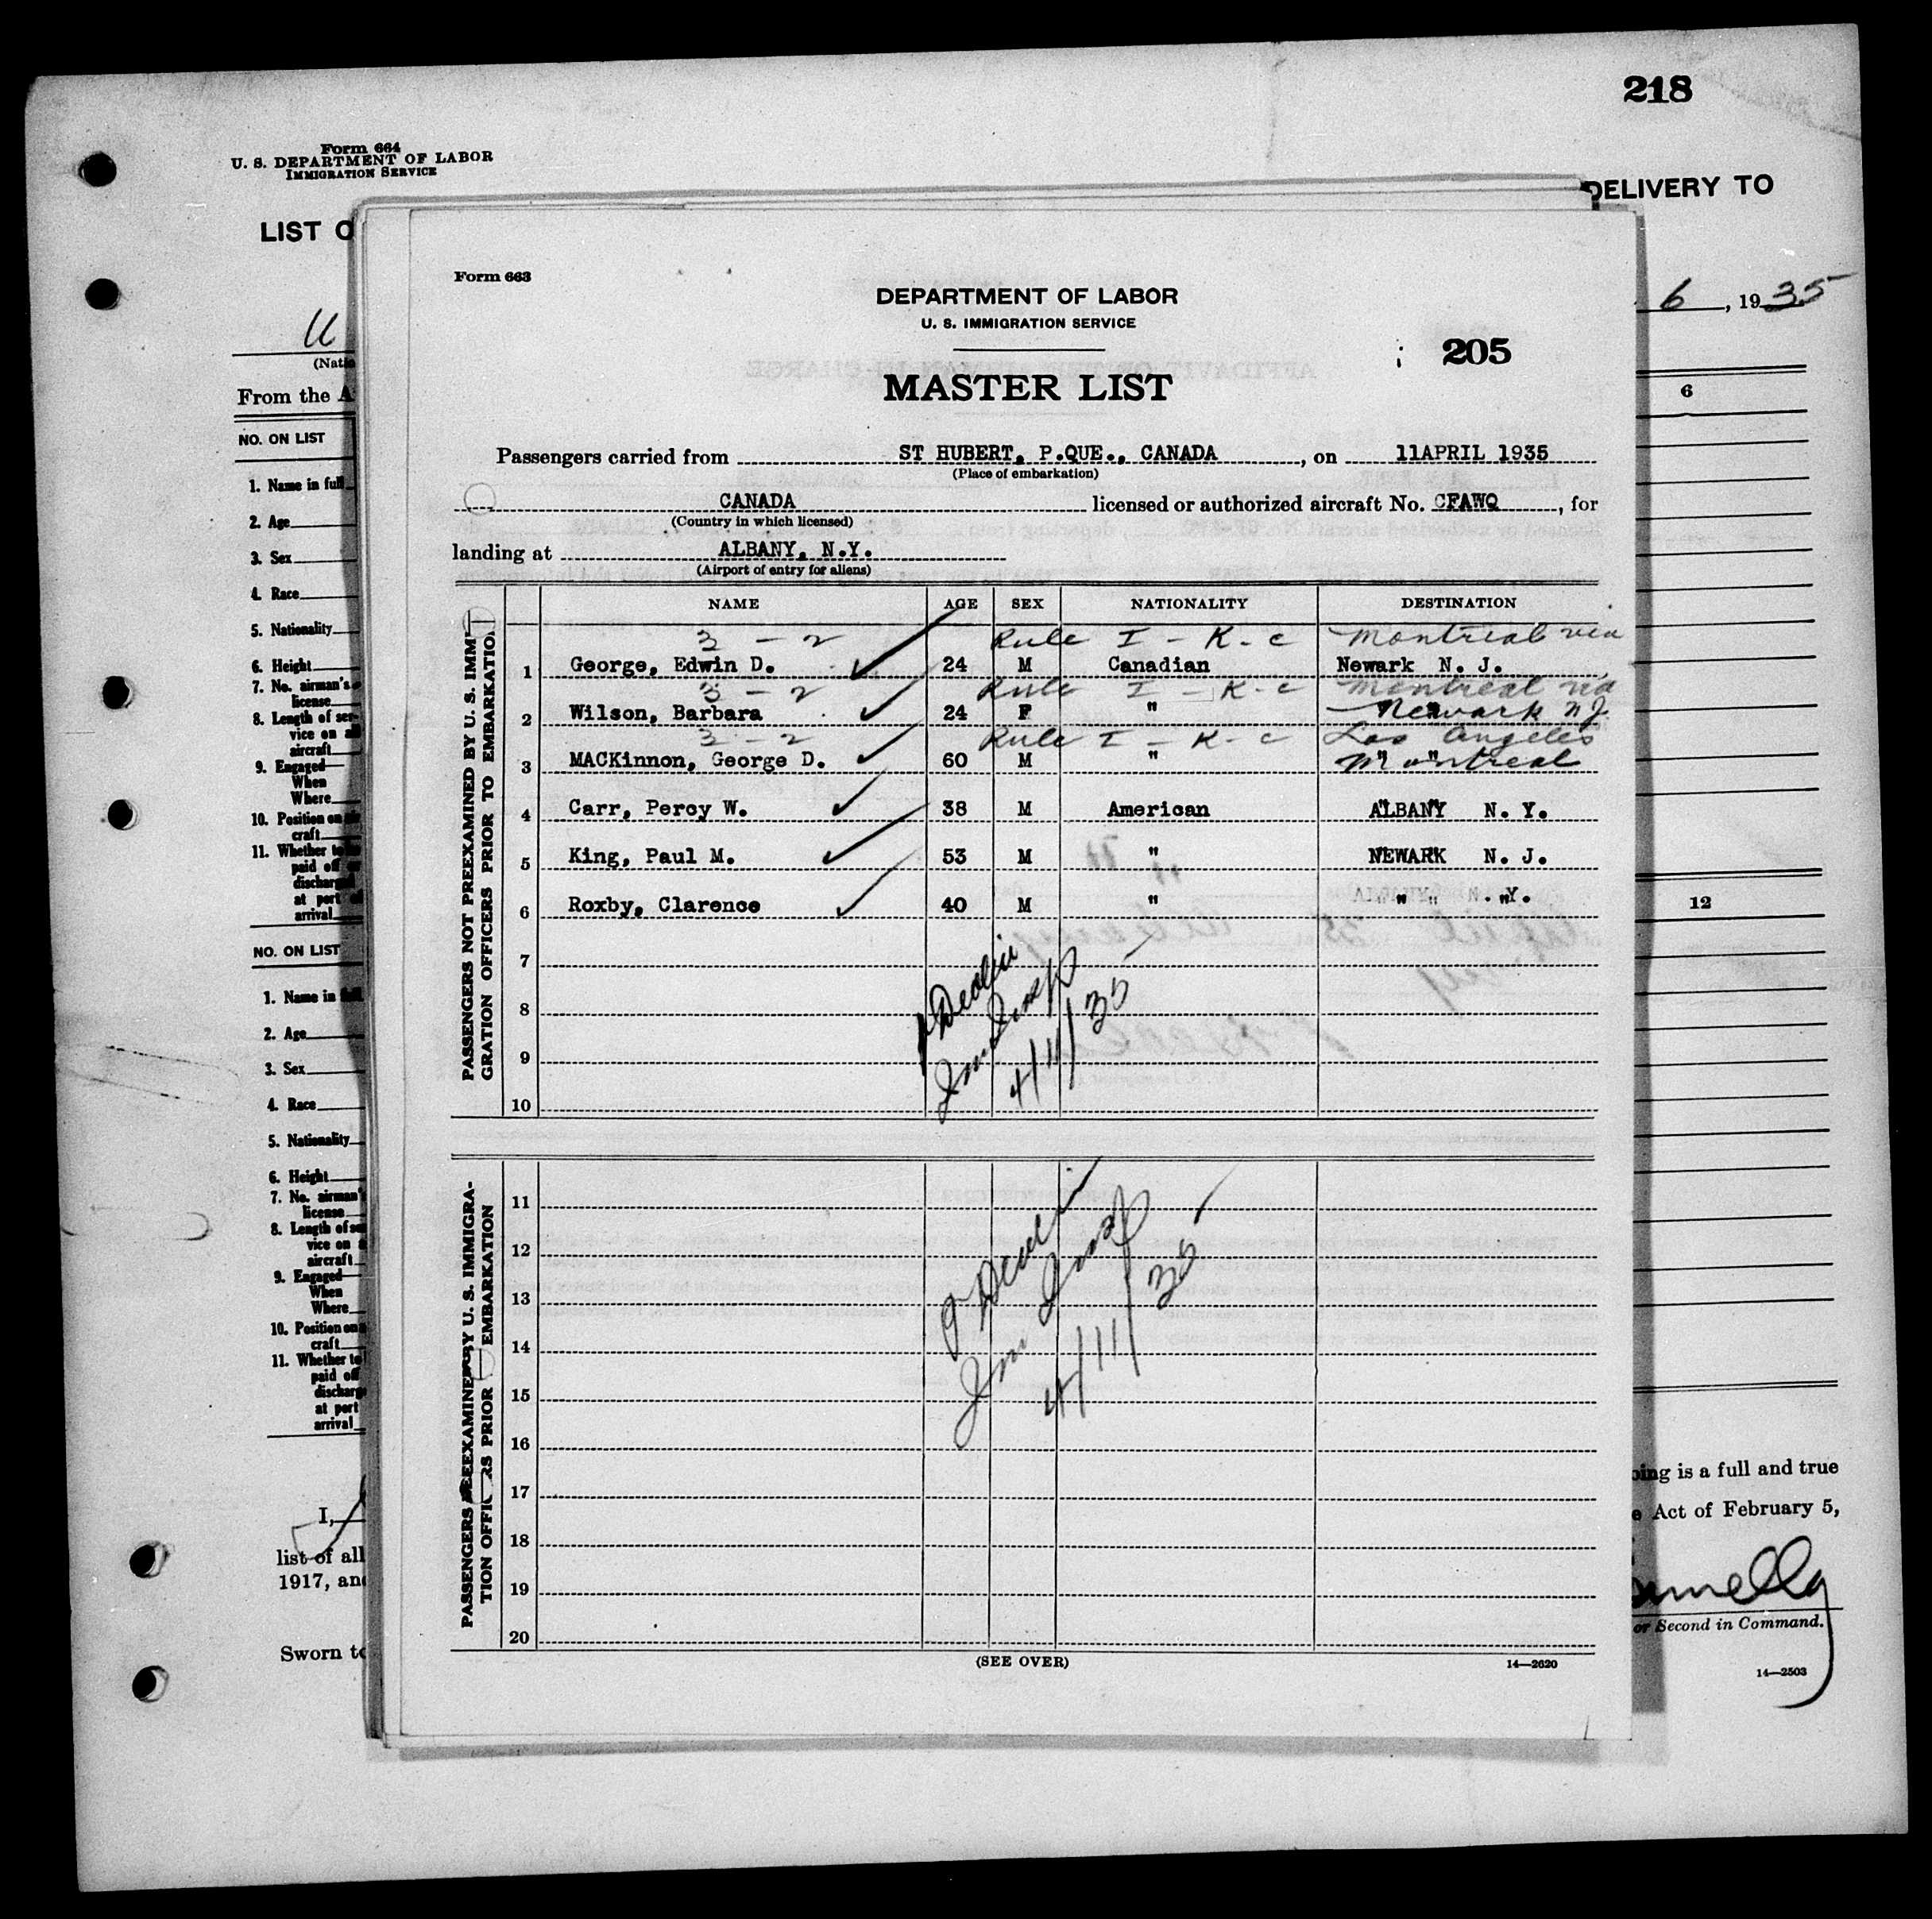 218
Form 664
U. S. DEPARTMENT OF LABOR
IMMIGRATION SERVICE
DELIVERY TO
LIST O
6, 1935
U
(Natio
From the A
6
NO. ON LIST
1. Name in full
2. Age
3. Sex
4. Race
5. Nationality
6. Height
7. No. airman's
license
8. Length of ser-
vice on a
aircraft
9. Engaged—
When
Where
10. Position on
craft
11. Whether to
paid off
discharged
at port
arrival
12
NO. ON LIST
1. Name in full
2. Age
3. Sex
4. Race
5. Nationality
6. Height
7. No. airman's
license
8. Length of se
vice on a
aircraft
9. Engaged—
When
Where
10. Position on
craft
11. Whether to
paid off
discharge
at port
arrival
I,
oing is a full and true
list of all
e Act of February 5,
1917, and
or Second in Command.
Sworn to
14—2503
Form 663
DEPARTMENT OF LABOR
U. S. IMMIGRATION SERVICE
205
MASTER LIST
Passengers carried from ST HUBERT, P.QUE., CANADA, on 11APRIL 1935
(Place of embarkation)
CANADA licensed or authorized aircraft No. CFAWQ, for
(Country in which licensed)
landing at ALBANY, N.Y.
(Airport of entry for aliens)
NAME AGE SEX NATIONALITY DESTINATION
PASSENGERS NOT PREEXAMINED BY U. S. IMMI
GRATION OFFICERS PRIOR TO EMBARKATION
3 - 2 Rule I - K-c Montreal via
1 George, Edwin D. 24 M Canadian Newark N. J.
3 - 2 Rule I - K-c Montreal via
2 Wilson, Barbara 24 F " Newark NJ.
3 - 2 Rule I - K-c Los Angeles
3 MACKinnon, George D. 60 M " Montreal
4 Carr, Percy W. 38 M American ALBANY N. Y.
5 King, Paul M. 53 M " NEWARK N. J.
6 Roxby, Clarence 40 M " " " "
7
8
9
10
4/11/35
PASSENGERS PREEXAMINED BY U. S. IMMIGRA-
TION OFFICERS PRIOR EMBARKATION
11
12
13
14
15
16
17
18
19
20
4/11/35
(SEE OVER)
14—2620